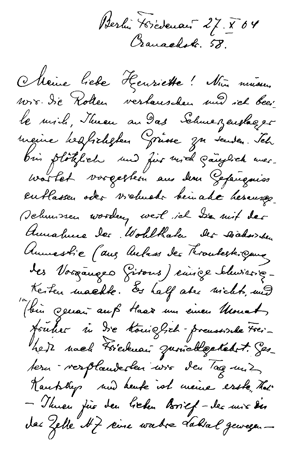 Berlin Friedenau 27. X 04
Cranachstr. 58.
Meine liebe Henriette! Nun müssen
wir die Rollen vertauschen und ich beei-
le mich, Ihnen an das Schmerzenslager
meine herzlichsten Grüsse zu senden. Ich
bin plötzlich und für mich gänzlich uner-
wartet vorgestern aus dem Gefängniss
entlassen oder vielmehr beinahe herausge-
schmissen worden, weil ich Ihnen mit der
Annahme der Wohlthaten der sächsischen
Amnestie (aus Anlass der Thronbesteigung
des Vorgängers Girons) einige Schwierig-
keiten machte. Es half aber nichts, und
ich bin genau aufs Haar um einen Monat
früher in die königlich-preussische Frei-
heit nach Friedenau zurückgekehrt. Ges-
tern verplauderten wir den Tag mit
Kautskys und heute ist meine erste
– Ihnen für den lieben Brief – der mir in
der Zelle N 7 eine wahre Labsal gewesen –